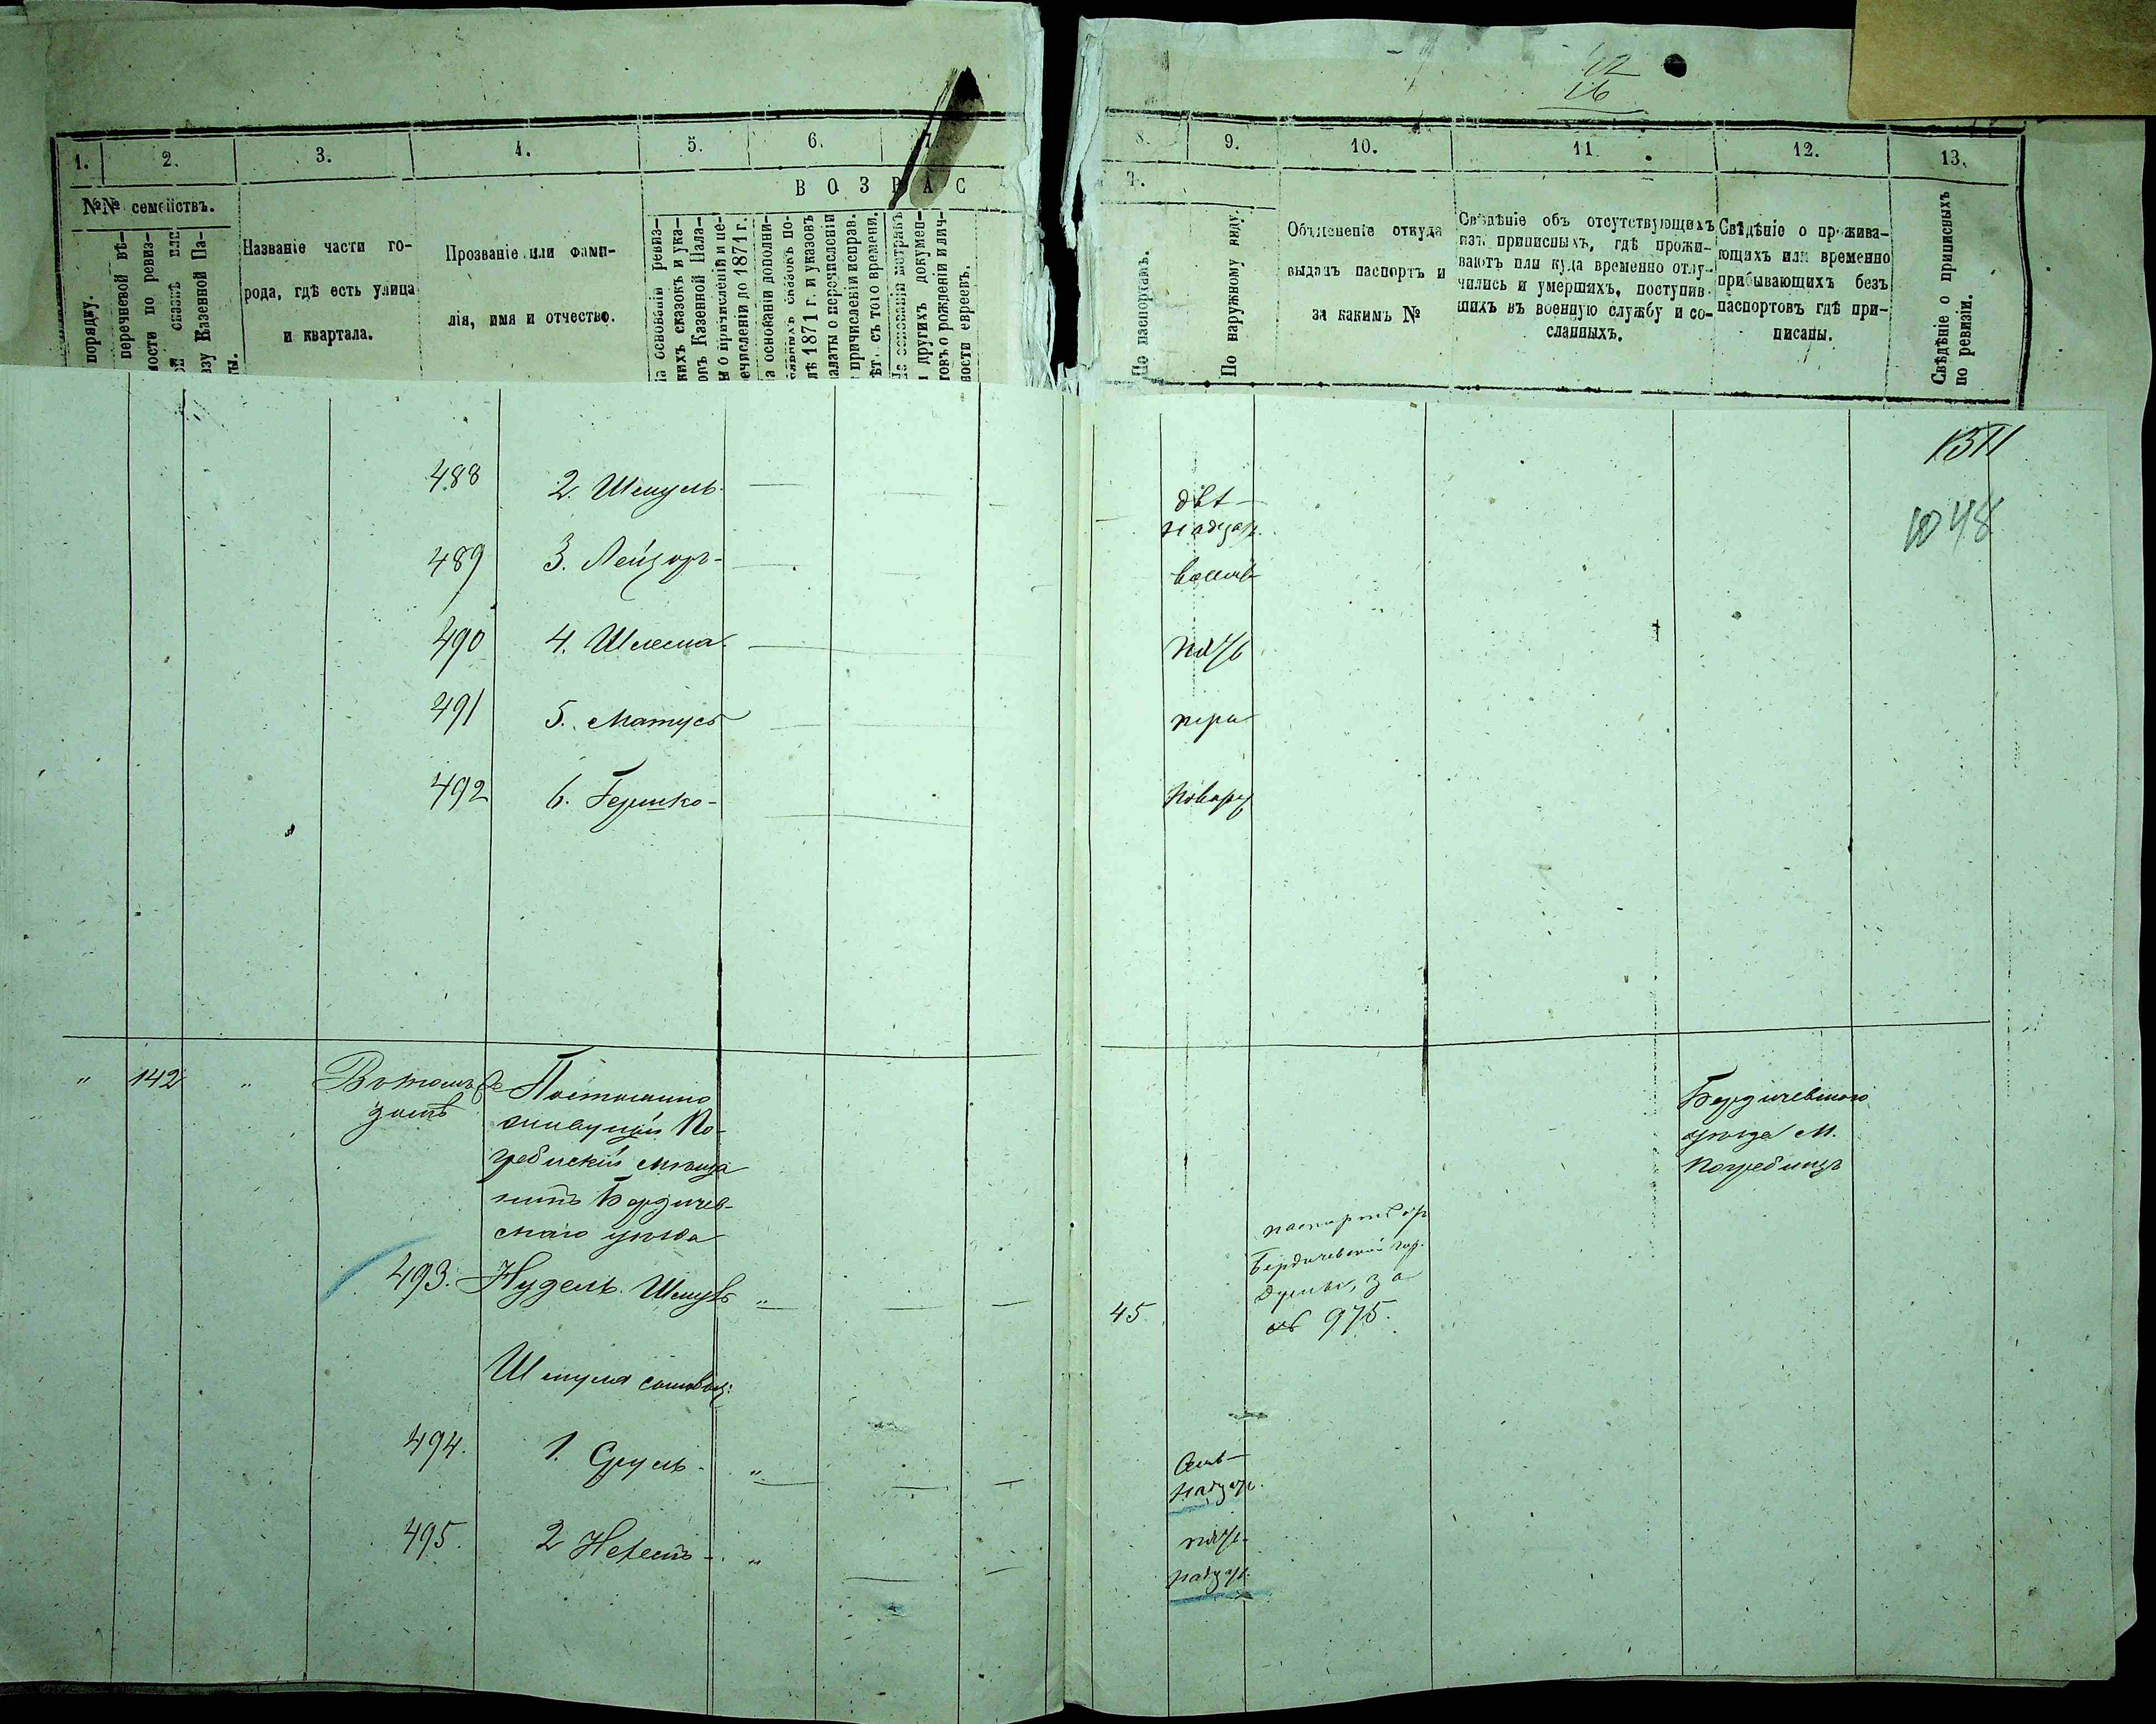 12
16
1. 2. 3. 4. 5. 6. 7.
8. 9. 10. 11. 12. 13.
ВОЗРАС
Т.
№№ семействъ.
порядку.
перечневой вѣ-
мости по ревиз-
ой сказкѣ или
азу Казенной Па-
ты.
Названіе части го-
рода, гдѣ есть улица
и квартала.
Прозваніе или фами-
лія, имя и отчество.
На основаніи ревиз-
скихъ сказокъ и ука-
зовъ Казенной Пала-
ты о причисленіи и пе-
речисленіи до 1871 г.
На основаніи дополни-
тельныхъ сказокъ по-
слѣ 1871 г. и указовъ
Палаты о перечисленіи
и причисленіи исправ.
лѣтъ съ того времени.
На основаніи метрикъ
и другихъ докумен-
товъ о рожденіи и лич-
ности евреевъ.
По паспортамъ.
По наружному виду.
Объясненіе откуда
выданъ паспортъ и
за какимъ №
Свѣдѣніе объ отсутствующихъ
изъ приписныхъ, гдѣ прожи-
ваютъ или куда временно отлу-
чились и умершихъ, поступив-
шихъ въ военную службу и со-
сланныхъ.
Свѣдѣніе о прожива-
ющихъ или временно
прибывающихъ безъ
паспортовъ гдѣ при-
писаны.
Свѣдѣніе о приписныхъ
по ревизіи.
1048
488 2. Шмуль двѣ-
надцать
489 3. Лейзоръ восемь
490 4. Шлема пять
491 5. Матусъ три
492 6. Гершко
" 142 " Въ томъ же
домѣ
Постоянно
живущій По-
гребискій мѣща
нинъ Бердичев-
скаго уѣзда
Бердичевскаго
уѣзда м.
Погребищъ
паспортъ
Бердичевской гор.
Думы, за
№ 975.
493. Нудель Шмуль " 45
Шмуля сыновья:
494. 1. Сруль " Семь-
надцать
495. 2 " пять-
надцать